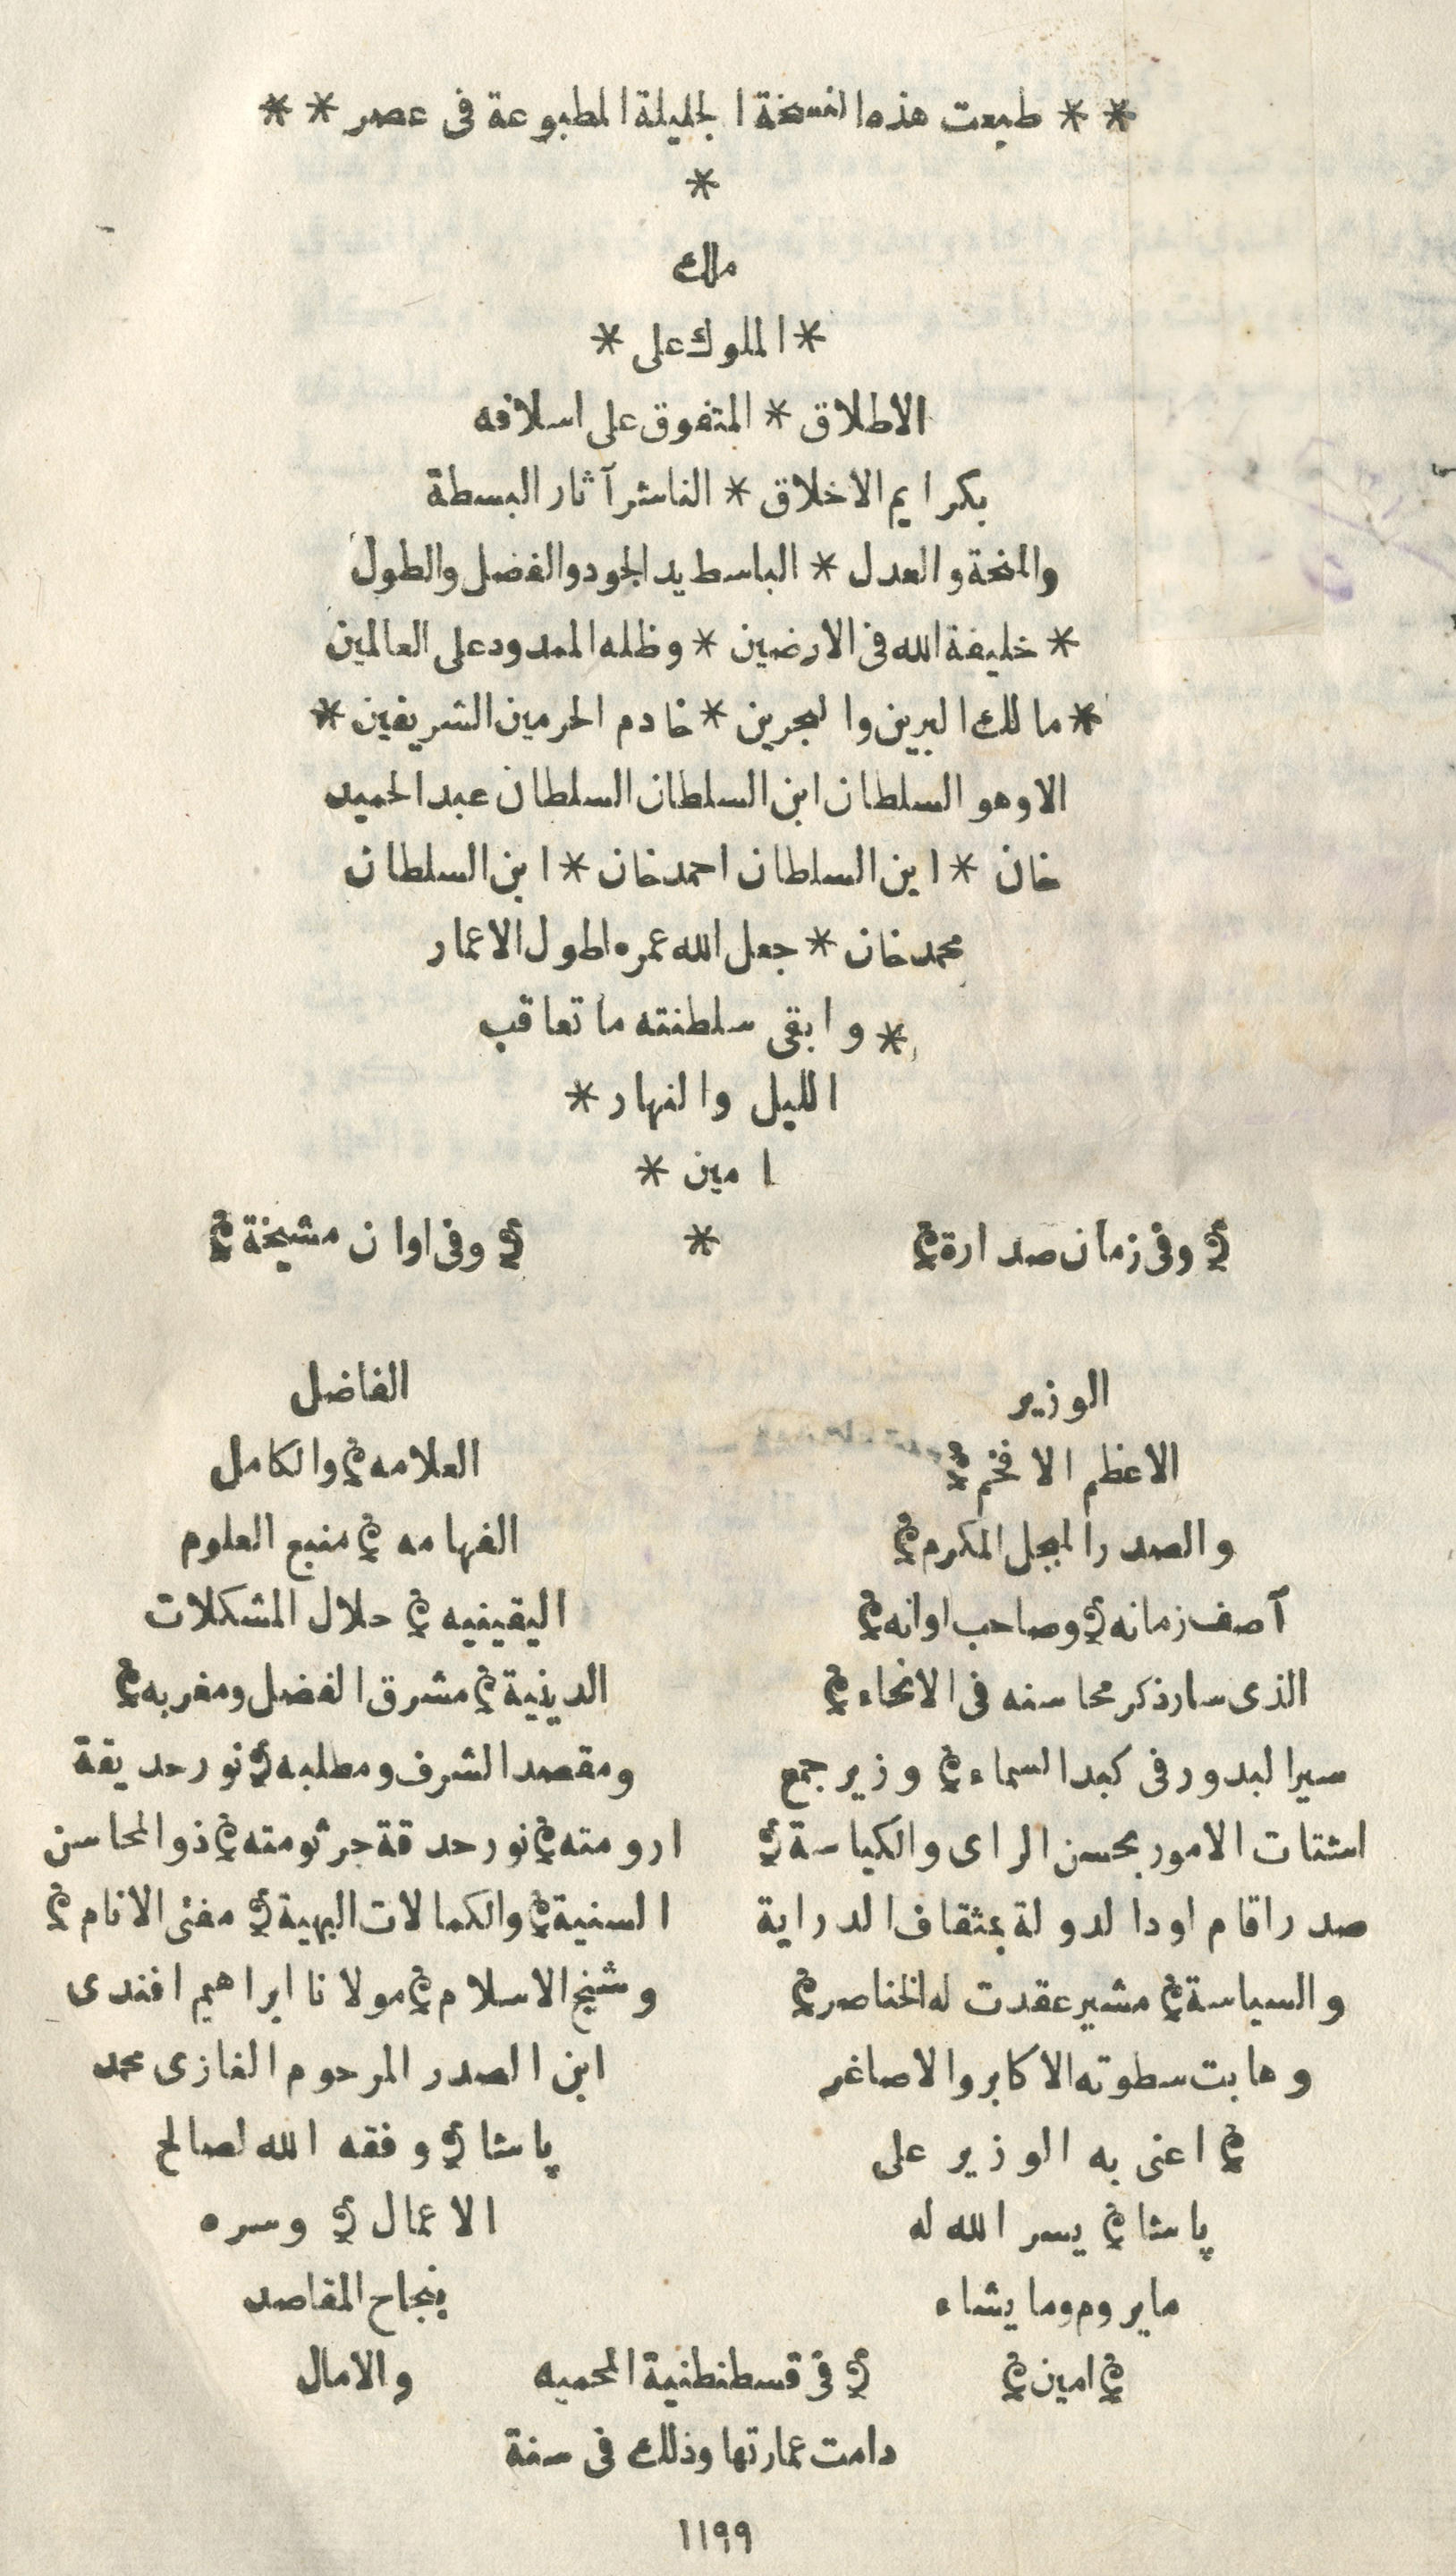 * * طبعت هذه النسخة الجليلة المطبوعة فى عصر * *
*
ملك
* الملوك على *
الاطلاق * المتفوق على اسلافه
بكرايم الاخلاق * الناشر آثار البسطة
والمنحة والعدل * الباسط يد الجود والفضل والطول
* خليفة الله فى الارضين * وظله الممدود على العالمين
* مالك البرين والبحرين * خادم الحرمين الشريفين *
الا وهو السلطان ابن السلطان السلطان عبد الحميد
خان * ابن السلطان احمد خان * ابن السلطان
محمد خان * جعل الله عمره اطول الاعمار
* وابقى سلطنته ما تعاقب
الليل والنهار *
امين *
*
وفى زمان صدارة
الوزير
الاعظم الافخم
والصدر المبجل المكرم
آصف زمانه وصاحب اوانه
الذى سار ذكر محاسنه فى الانحاء
سير البدور فى كبد السماء وزير جمع
اشتات الامور بحسن الراى والكياسة
صدر اقام اود الدولة بمثقاف الدراية
والسياسة مشير عقدت له الخناصر
وهابت سطوته الاكابر والاصاغر
اعنى به الوزير على
پاشا يسر الله له
ما يروم وما يشاء
امين
وفى اوان مشيخة
الفاضل
العلامه والكامل
الفهامه منبع العلوم
اليقينيه حلال المشكلات
الدينية مشرق الفضل ومغربه
ومقصد الشرف ومطلبه نور حديقة
ارومته نور حدقة جرثومته ذو المحاسن
السنية والكمالات البهية مفتى الانام
وشيخ الاسلام مولانا ابراهيم افندى
ابن الصدر المرحوم الغازى محمد
پاشا وفقه الله لصالح
الاعمال وسره
بنجاح المقاصد
والامال
فى قسطنطنية المحميه
دامت عمارتها وذلك فى سنة
١١٩٩